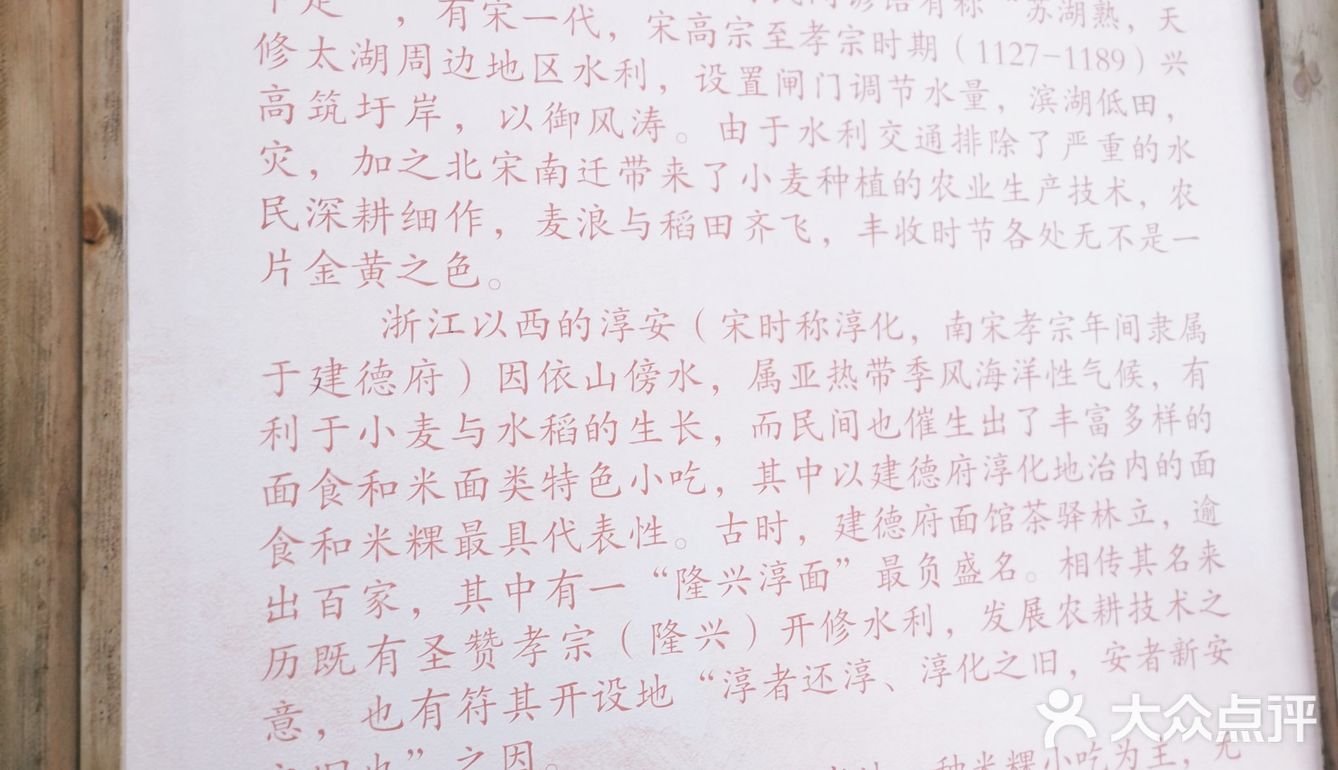 ，有宋一代，宋高宗至孝宗时期（1127-1189）兴
修太湖周边地区水利，设置闸门调节水量，滨湖低田，
高筑圩岸，以御风涛。由于水利交通排除了严重的水
灾，加之北宋南迁带来了小麦种植的农业生产技术，农
民深耕细作，麦浪与稻田齐飞，丰收时节各处无不是一
片金黄之色。
浙江以西的淳安（宋时称淳化，南宋孝宗年间隶属
于建德府）因依山傍水，属亚热带季风海洋性气候，有
利于小麦与水稻的生长，而民间也催生出了丰富多样的
面食和米面类特色小吃，其中以建德府淳化地治内的面
食和米粿最具代表性。古时，建德府面馆茶驿林立，逾
出百家，其中有一“隆兴淳面”最负盛名。相传其名来
历既有圣赞孝宗（隆兴）开修水利，发展农耕技术之
意，也有符其开设地“淳者还淳、淳化之旧，安者新安
之旧也”之因。
种米粿小吃为主，尤
大众点评